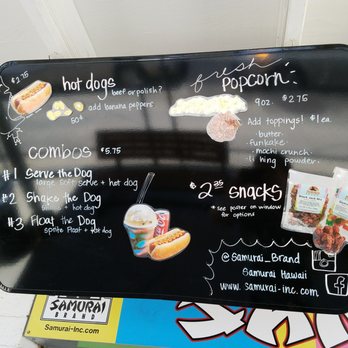 $2.75
hot dogs
beef or polish?
add banana peppers
50¢
combos $5.75
#1 Serve the Dog
large soft serve + hot dog
#2 Shake the Dog
+ hot dog
#3 Float the Dog
Sprite float + hot dog
fresh
popcorn:
9oz. $2.75
Add toppings! $1ea.
· butter
· furikake
· mochi crunch
· li hing powder
$2.35 snacks
* see poster on window *
for options
@Samurai_Brand
Samurai Hawaii
www.samurai-inc.com
SAMURAI
BRAND
Samurai-Inc.com